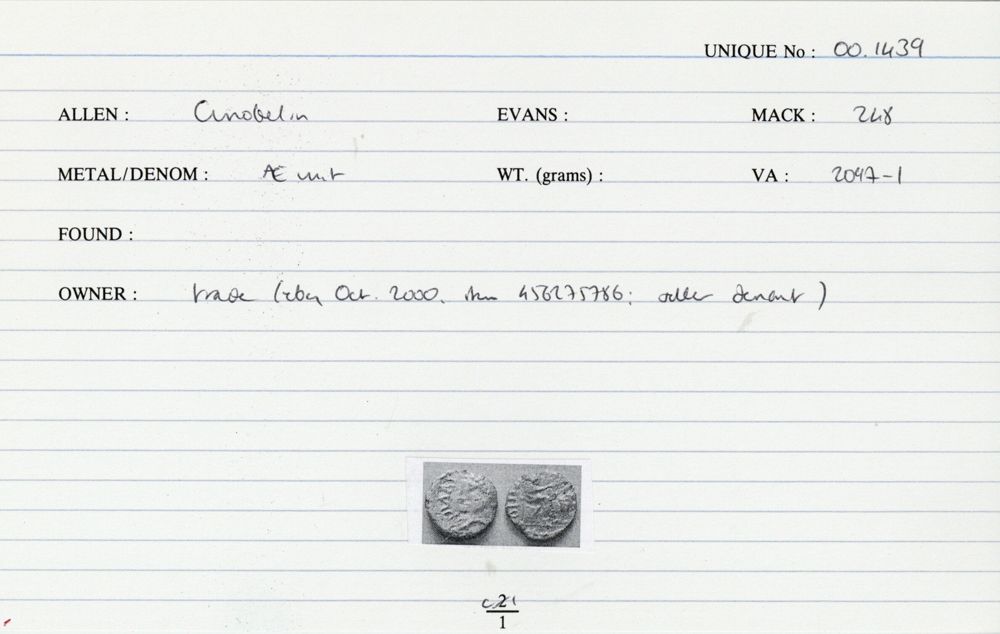 UNIQUE No : 00.1439
ALLEN : Cunobelin EVANS : MACK : 248
METAL/DENOM : Æ unit WT. (grams) : VA : 2097-1
FOUND :
OWNER : trade (ebay Oct. 2000, item 456275786; seller )
1